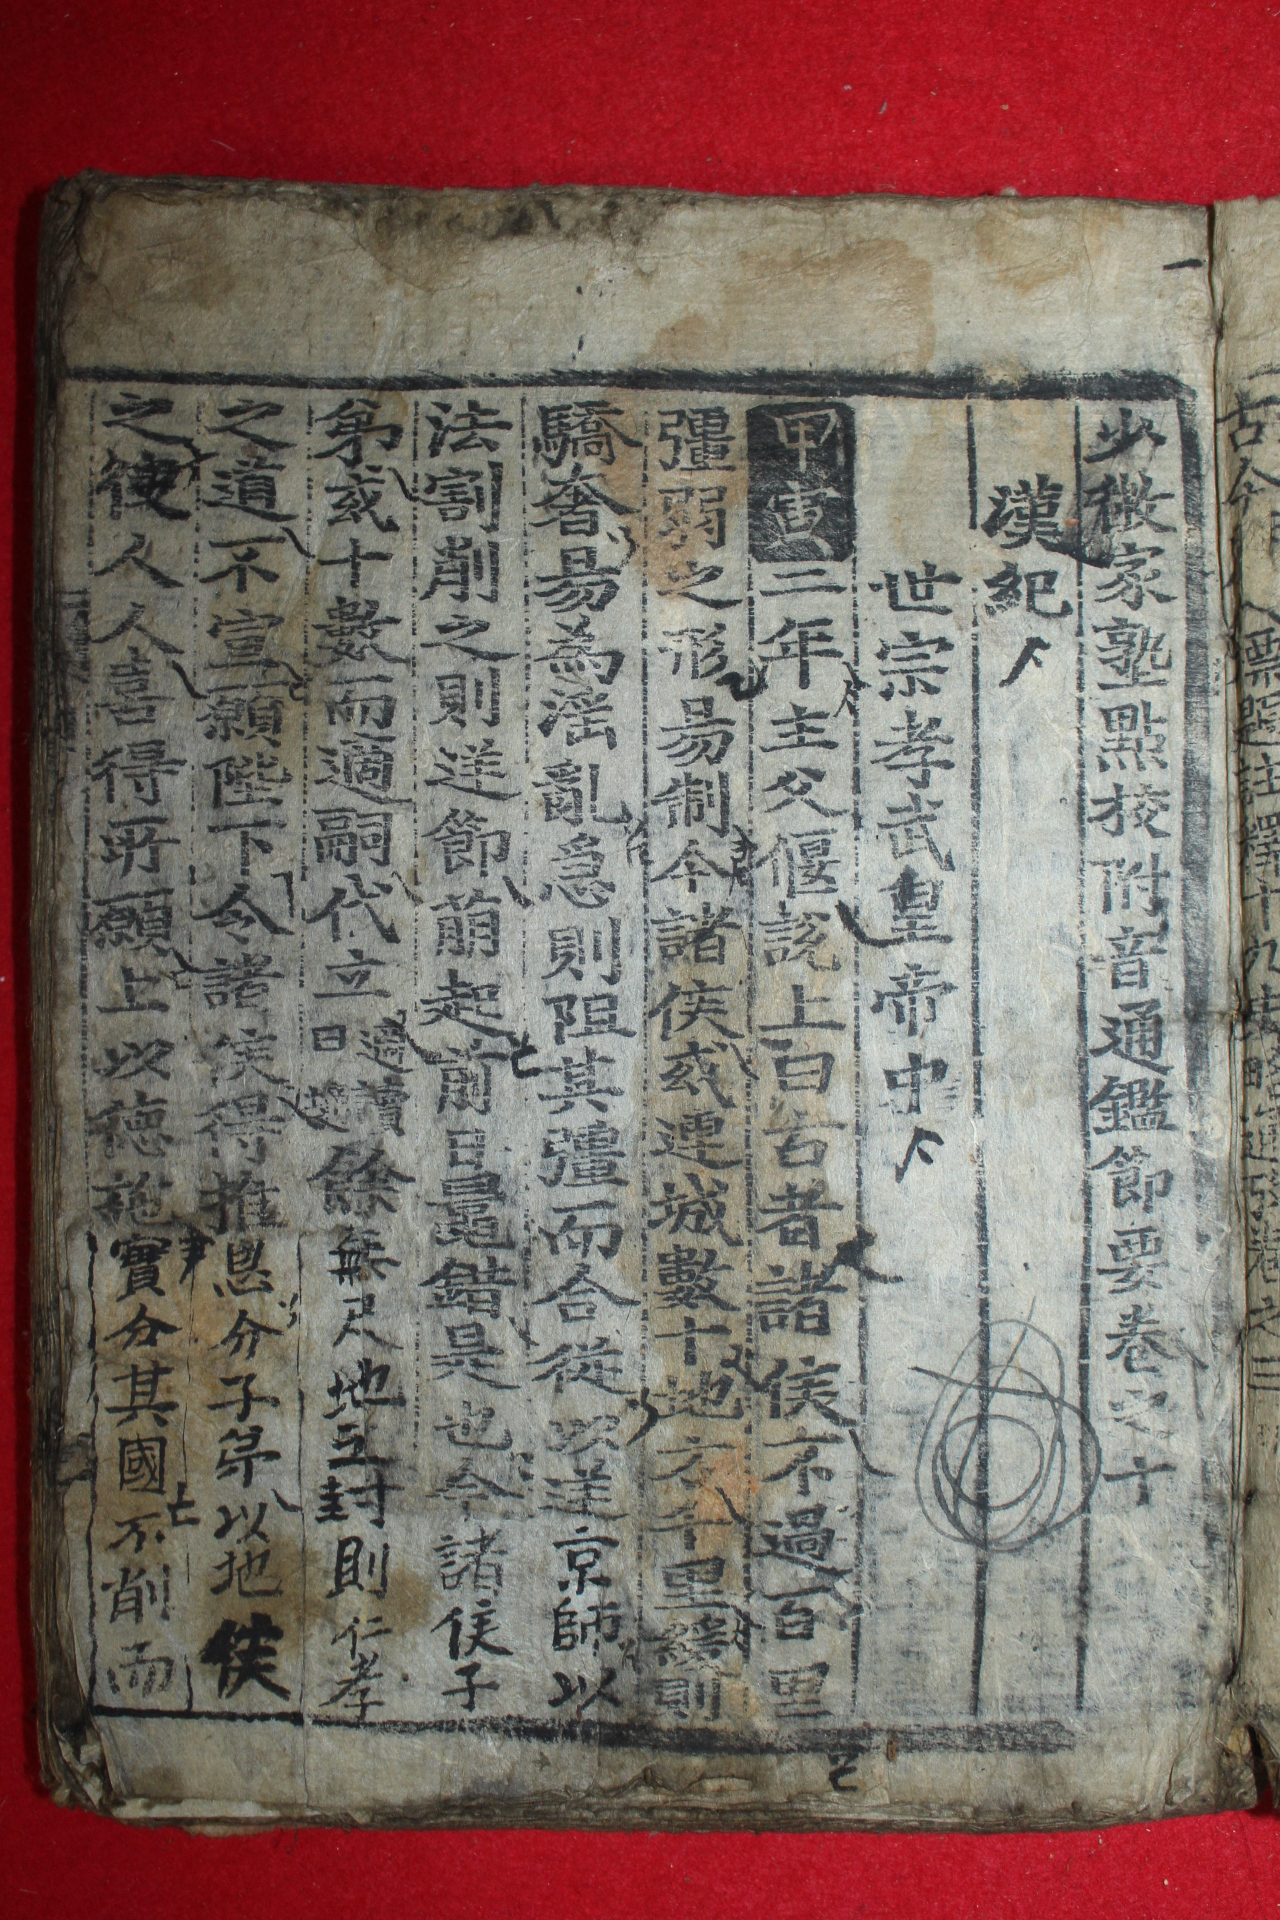 少微家塾點校附音通鑑節要卷之十
漢紀
世宗孝武皇帝中
甲寅二年主父偃說上曰古者諸侯不過百里
彊弱之形易制今諸侯或連城數十地方千里緩則
驕奢易為淫亂急則阻其彊而合從以逆京師以
法割削之則逆節萌起前日鼂錯是也今諸侯子
弟或十數而適嗣代立適讀曰嫡餘無尺地之封則仁孝
之道不宣願陛下令諸侯得推恩分子弟以地侯
之使人人喜得所願上以德施實分其國不削而